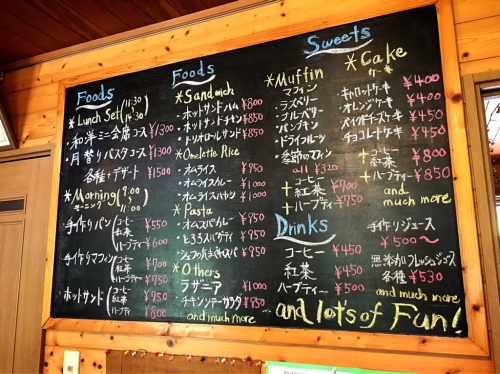 Foods
*Lunch Set (11:30 14:30)
・和洋ミニ会席コース ¥1300
・月替りパスタコース ¥1300
各種+デザート ¥1500
*Morning (9:00 〜 11:00)
モーニング
手作りパン
コーヒー ¥550
紅茶
ハーブティー ¥600
手作りマフィン
コーヒー
紅茶 ¥700
ハーブティー ¥750
ホットサンド
コーヒー
紅茶 ¥750
ハーブティ ¥800
Foods
*Sandwich
・ホットサンドハム ¥800
・ホットサンドチキン ¥850
・トリオロールサンド ¥850
*Omelette Rice
・オムライス ¥950
・オムライスカレー ¥1000
・オムライスハヤシ ¥1000
*Pasta
・オムスパカレー ¥950
・とろろスパゲティ ¥950
¥950
*Others
ラザニア ¥1000
チキンソテーサラダ ¥950
and much more
Sweets
*Muffin
マフィン
・ラズベリー
・ブルーベリー
・パンプキン
・ドライフルーツ
・季節のマフィン
all ¥320
+コーヒー
紅茶 ¥700
+ハーブティー ¥750
*Cake
ケーキ
・キャロットケーキ ¥400
・オレンジケーキ ¥400
・ベイクドチーズケーキ ¥450
・チョコレートケーキ ¥450
+コーヒー ¥800
紅茶
+ハーブティー ¥850
and much more
Drinks
コーヒー ¥450
紅茶 ¥450
ハーブティー 〜 ¥500
手作りジュース
¥500〜
無添加フレッシュジュース
各種 ¥530
and much more
and lot's of Fun!